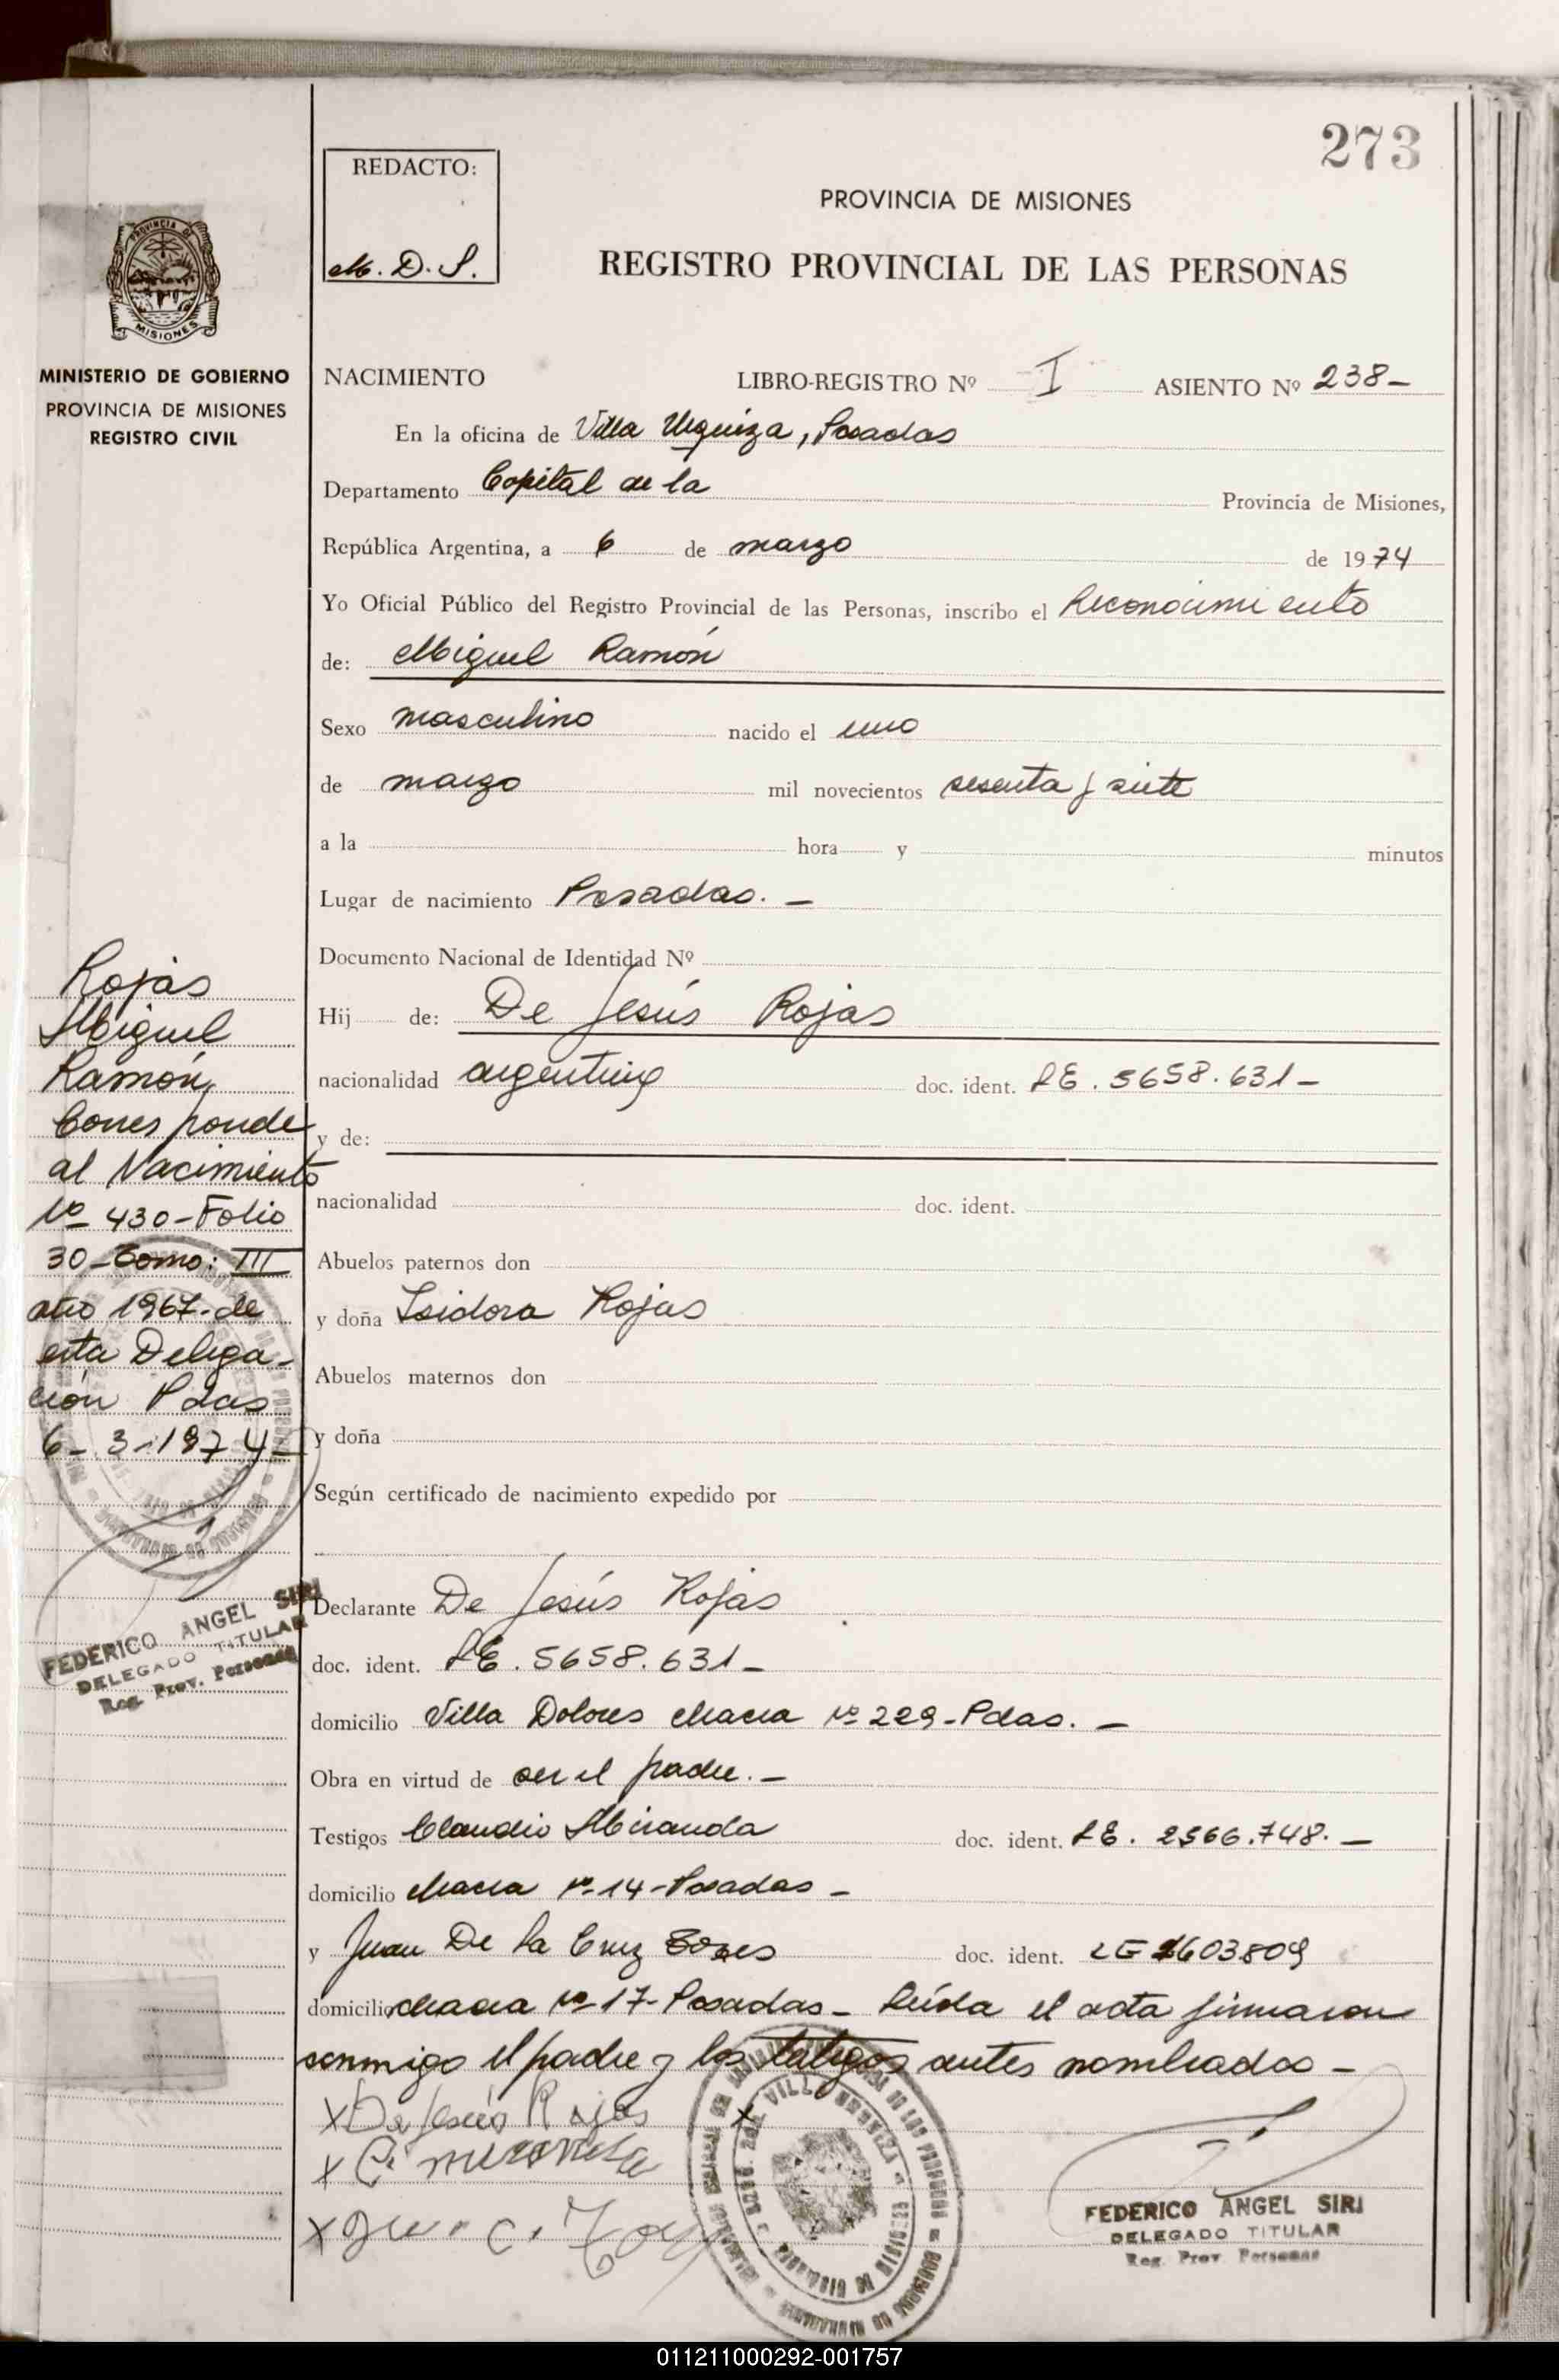 273
REDACTO:
M. D. S.
PROVINCIA DE MISIONES
REGISTRO PROVINCIAL DE LAS PERSONAS
PROVINCIA DE
MISIONES
MINISTERIO DE GOBIERNO
PROVINCIA DE MISIONES
REGISTRO CIVIL
NACIMIENTO LIBRO-REGISTRO Nº I ASIENTO Nº 238-
En la oficina de Villa Urquiza, Posadas
Departamento Capital de la Provincia de Misiones,
República Argentina, a 6 de marzo de 1974
Yo Oficial Público del Registro Provincial de las Personas, inscribo el Reconocimiento
de: Miguel Ramón
Sexo masculino nacido el uno
de marzo mil novecientos sesenta y siete
a la hora y minutos
Lugar de nacimiento Posadas. -
Documento Nacional de Identidad Nº
Hij de: De Jesús Rojas
nacionalidad argentina doc. ident. LE. 5658.631-
y de:
nacionalidad doc. ident.
Abuelos paternos don
y doña Isidora Rojas
Abuelos maternos don
y doña
Según certificado de nacimiento expedido por
Declarante De Jesús Rojas
doc. ident. LE. 5658.631-
domicilio Villa Dolores chacra Nº 229-Pdas. -
Obra en virtud de ser el padre. -
Testigos Claudio Miranda doc. ident. LE. 2566.748. -
domicilio chacra Nº 14-Posadas -
y Juan De la Cruz doc. ident. LE 1603809
domicilio chacra Nº 17-Posadas- Leída el acta firmaron
conmigo el padre y los testigos antes nombrados -
x De Jesús Rojas
x C. miranda
x
Rojas
Miguel
Ramón,
Corresponde
al Nacimiento
Nº 430-Folio
30-Tomo: III
año 1967-de
esta Delega-
ción Pdas
6-3-1974-
FEDERICO ANGEL SIRI
DELEGADO TITULAR
Reg. Prov. Personas
FEDERICO ANGEL SIRI
DELEGADO TITULAR
Reg. Prov. Personas
011211000292-001757